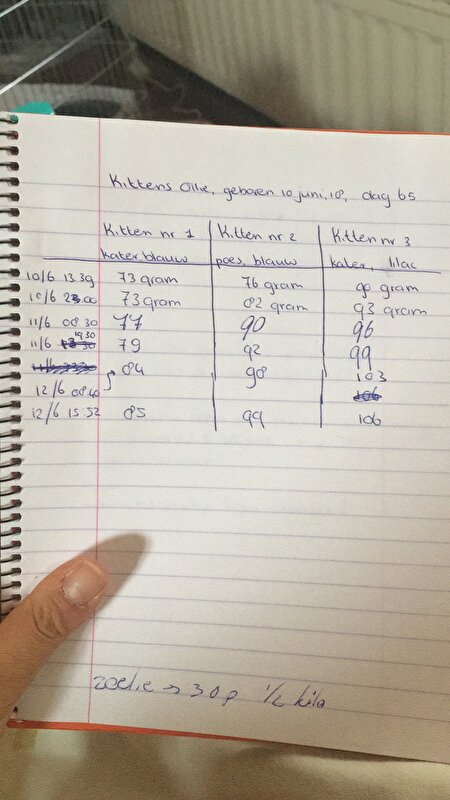 Kittens Ollie, geboren 10 juni, 18, dag 65
Kitten nr 1 Kitten nr 2 Kitten nr 3
kater blauw poes, blauw kater, lilac
10/6 13.39 73 gram 76 gram 90 gram
10/6 23.00 73 gram 82 gram 93 gram
11/6 08.30 77 90 96
11/6 19.30 79 92 99
84 98 103
12/6 08.40 106
12/6 15.52 85 99 106
→ 30p 1/2 kilo